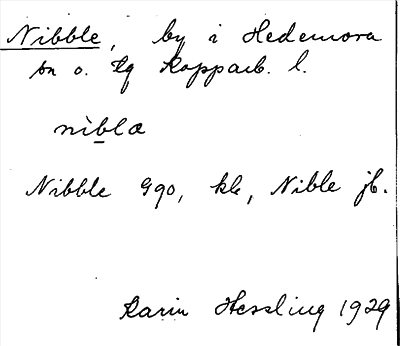 Nibble, by i Hedemora
sn o. tg Kopparb. l.
nìblα
Nibble Gqo, kk, Nible jb.
Karin Hessling 1929